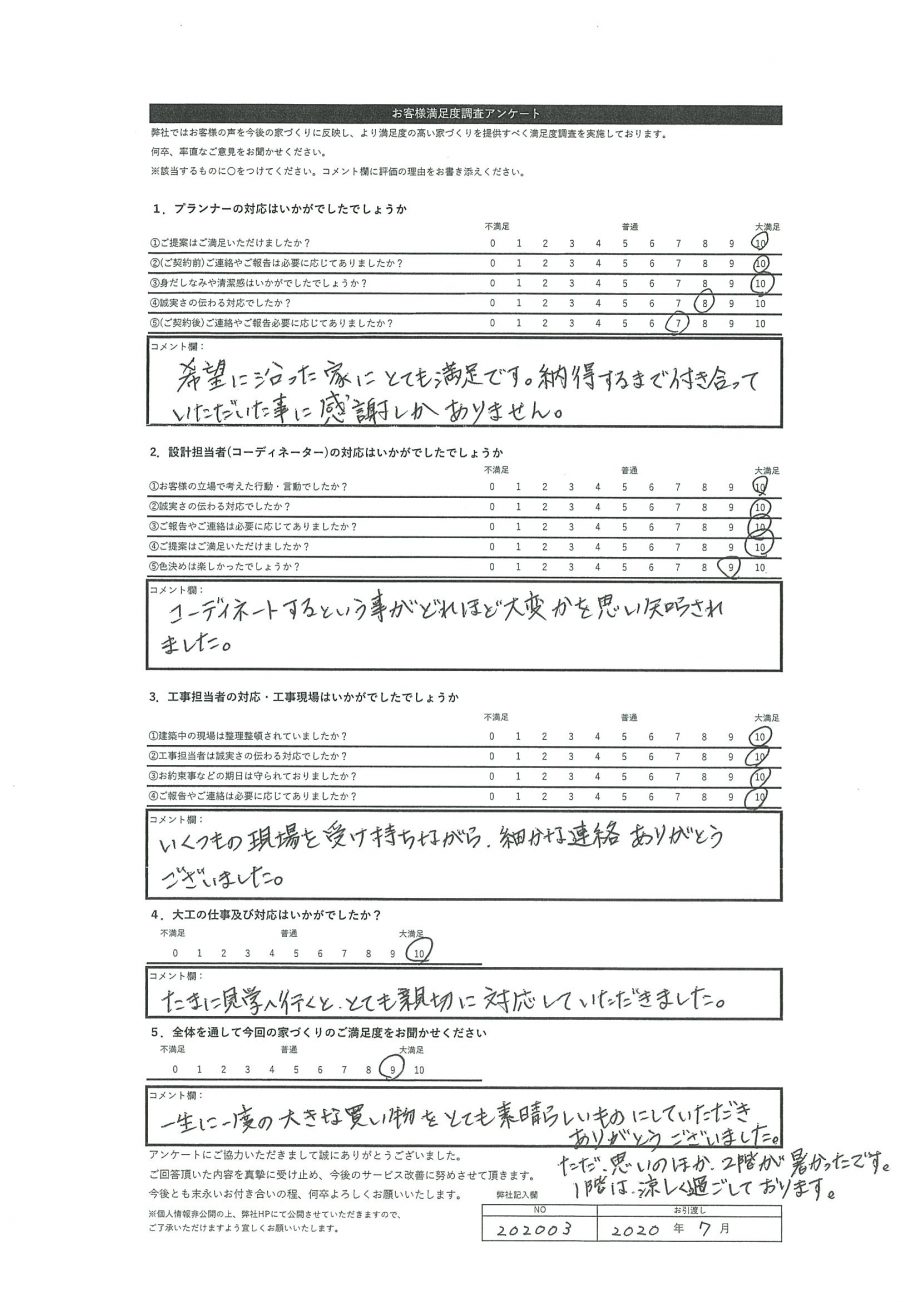 お客様満足度調査アンケート
弊社ではお客様の声を今後の家づくりに反映し、より満足度の高い家づくりを提供すべく満足度調査を実施しております。
何卒、率直なご意見をお聞かせください。
※該当するものに〇をつけてください。コメント欄に評価の理由をお書き添えください。
1．プランナーの対応はいかがでしたでしょうか
不満足 普通 大満足
①ご提案はご満足いただけましたか？ 0 1 2 3 4 5 6 7 8 9 10
②(ご契約前)ご連絡やご報告は必要に応じてありましたか？ 0 1 2 3 4 5 6 7 8 9 10
③身だしなみや清潔感はいかがでしたでしょうか？ 0 1 2 3 4 5 6 7 8 9 10
④誠実さの伝わる対応でしたか？ 0 1 2 3 4 5 6 7 8 9 10
⑤(ご契約後)ご連絡やご報告必要に応じてありましたか？ 0 1 2 3 4 5 6 7 8 9 10
コメント欄：
希望に沿った家にとても満足です。納得するまで付き合って
いただいた事に感謝しかありません。
2．設計担当者(コーディネーター)の対応はいかがでしたでしょうか
不満足 普通 大満足
①お客様の立場で考えた行動・言動でしたか？ 0 1 2 3 4 5 6 7 8 9 10
②誠実さの伝わる対応でしたか？ 0 1 2 3 4 5 6 7 8 9 10
③ご報告やご連絡は必要に応じてありましたか？ 0 1 2 3 4 5 6 7 8 9 10
④ご提案はご満足いただけましたか？ 0 1 2 3 4 5 6 7 8 9 10
⑤色決めは楽しかったでしょうか？ 0 1 2 3 4 5 6 7 8 9 10
コメント欄：
コーディネートするという事がどれほど大変かを思い知らされ
ました。
3．工事担当者の対応・工事現場はいかがでしたでしょうか
不満足 普通 大満足
①建築中の現場は整理整頓されていましたか？ 0 1 2 3 4 5 6 7 8 9 10
②工事担当者は誠実さの伝わる対応でしたか？ 0 1 2 3 4 5 6 7 8 9 10
③お約束事などの期日は守られておりましたか？ 0 1 2 3 4 5 6 7 8 9 10
④ご報告やご連絡は必要に応じてありましたか？ 0 1 2 3 4 5 6 7 8 9 10
コメント欄：
いくつもの現場を受け持ちながら、細かな連絡ありがとう
ございました。
4．大工の仕事及び対応はいかがでしたか？
不満足 普通 大満足
0 1 2 3 4 5 6 7 8 9 10
コメント欄：
たまに見学へ行くと、とても親切に対応していただきました。
5．全体を通して今回の家づくりのご満足度をお聞かせください
不満足 普通 大満足
0 1 2 3 4 5 6 7 8 9 10
コメント欄：
一生に一度の大きな買い物をとても素晴らしいものにしていただき
ありがとうございました。
ただ、思いのほか、2階が暑かったです。
1階は、涼しく過ごしております。
アンケートにご協力いただきまして誠にありがとうございました。
ご回答頂いた内容を真摯に受け止め、今後のサービス改善に努めさせて頂きます。
今後とも末永いお付き合いの程、何卒よろしくお願いいたします。
※個人情報非公開の上、弊社HPにて公開させていただきますので、
ご了承いただけますよう宜しくお願いいたします。
弊社記入欄
NO お引渡し
202003 2020 年 7 月